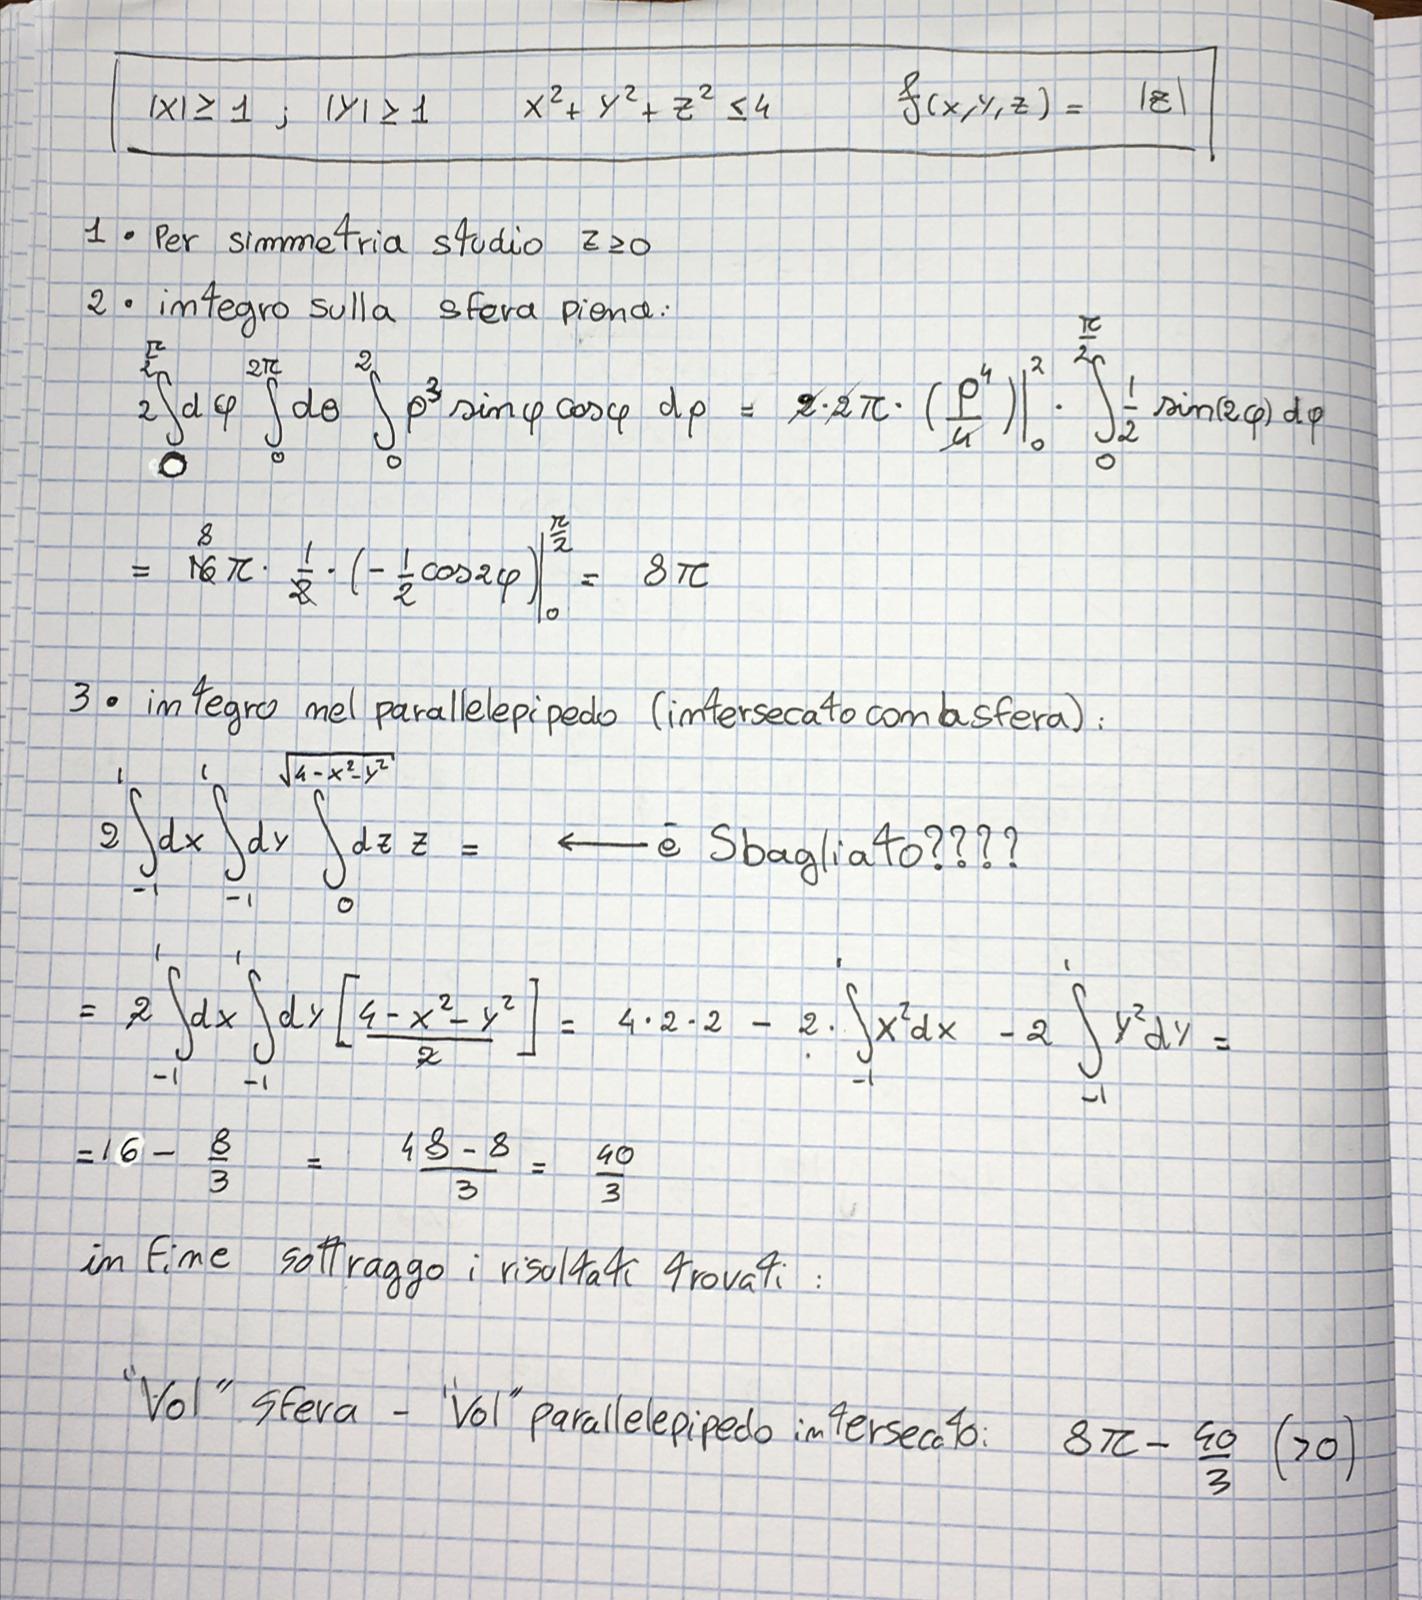 |x| ≥ 1 ; |y| ≥ 1 x² + y² + z² ≤ 4 f(x,y,z) = |z|
1 • Per simmetria studio z≥0
2 • integro sulla sfera piena:
2∫₀^{π/2} dφ ∫₀^{2π} dθ ∫₀^{2} ρ³ sinφ cosφ dρ = 2·2π·(ρ⁴/4)|₀² · ∫₀^{π/2} 1/2 sin(2φ) dφ
= 16 8 π · 1/2 · (-1/2 cos2φ)|₀^{π/2} = 8π
3 • integro nel parallelepipedo (intersecato con la sfera):
2∫₋₁^{1} dx ∫₋₁^{1} dy ∫₀^{√(4-x²-y²)} dz z = ← è Sbagliato????
= 2∫₋₁^{1} dx ∫₋₁^{1} dy [(4-x²-y²)/2] = 4·2·2 - 2·∫₋₁^{1} x²dx - 2∫₋₁^{1} y²dy =
= 16 - 8/3 = (48-8)/3 = 40/3
in fine sottraggo i risultati trovati :
"Vol" sfera - "Vol" parallelepipedo intersecato: 8π - 40/3 (>0)